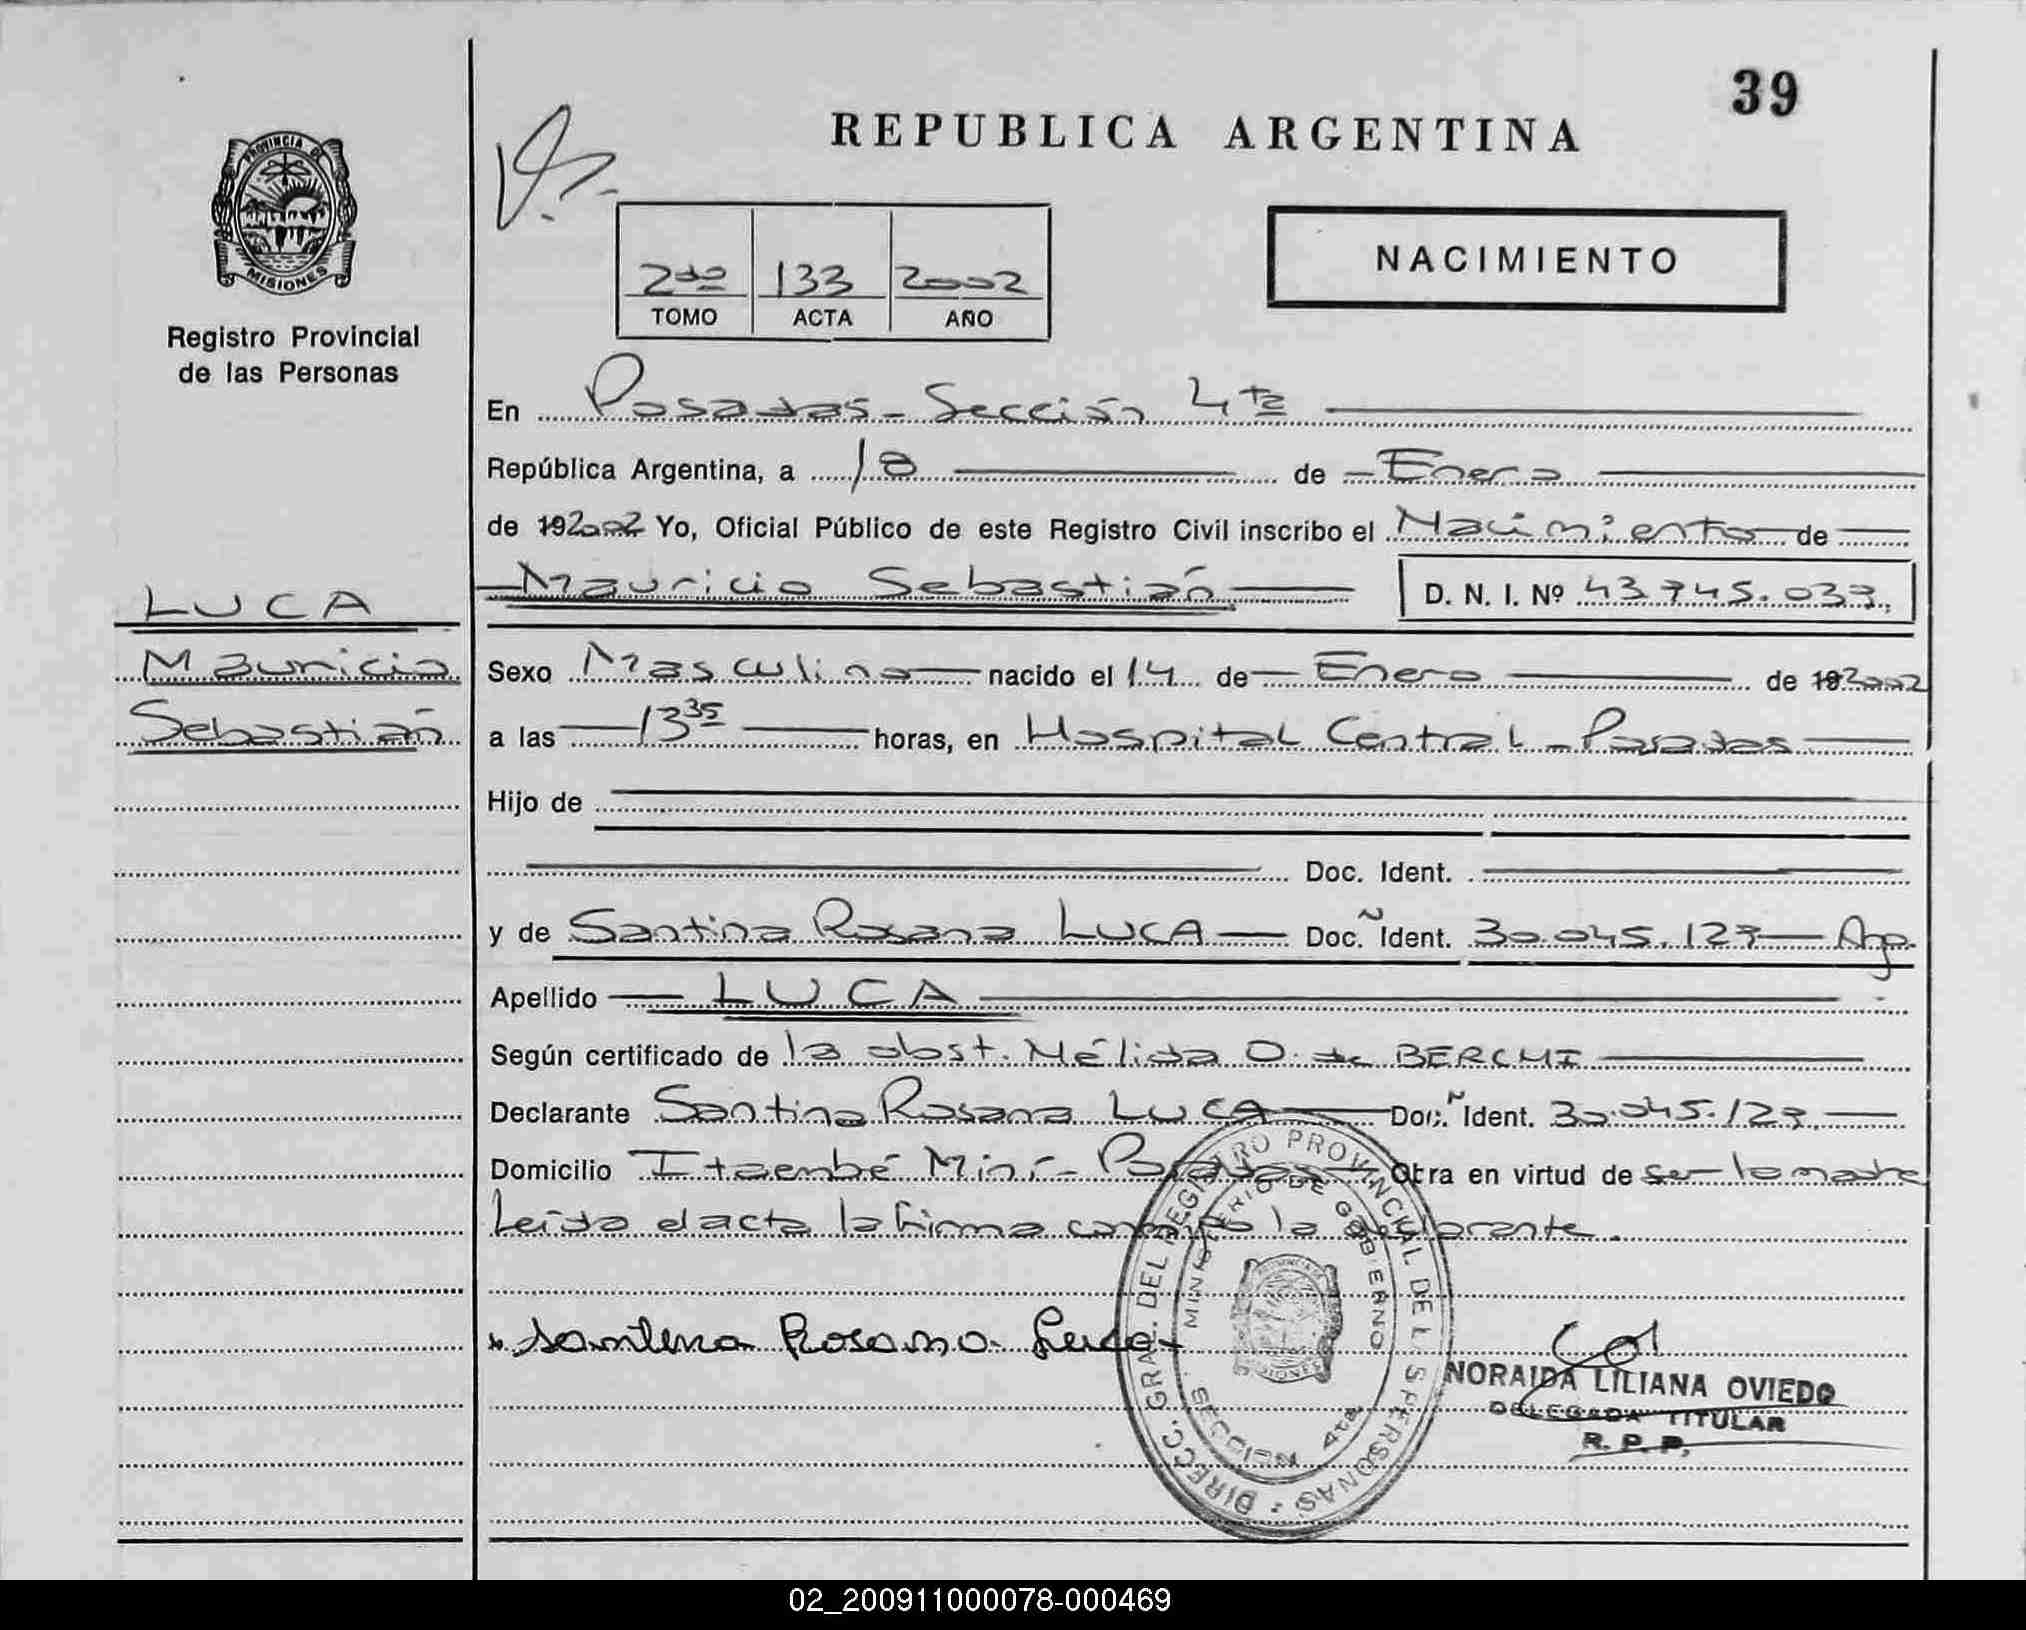 39
REPUBLICA ARGENTINA
PROVINCIA DE
MISIONES
Registro Provincial
de las Personas
NACIMIENTO
2do 133 2002
TOMO ACTA AÑO
En Posadas - Sección 4ta
República Argentina, a 18 de Enero
de 19 2002 Yo, Oficial Público de este Registro Civil inscribo el Nacimiento de
Mauricio Sebastián D. N. I. Nº 43.745.037
LUCA
Mauricio
Sebastián
Sexo Masculino nacido el 14 de Enero de 19 2002
a las 13 35 horas, en Hospital Central - Posadas
Hijo de
Doc. Ident.
y de Santina Rosana LUCA Doc. Ident. 30.045.127 Arg.
Apellido LUCA
Según certificado de la obst. Nélida O. de BERCHI
Declarante Santina Rosana LUCA Doc. Ident. 30.045.127
Domicilio Itaembé Miní - Posadas Obra en virtud de ser la madre
Leída el acta la firma conmigo la declarante.
Santina Rosana Luca
DIRECC. GRAL. DEL REGISTRO PROVINCIAL DE LAS PERSONAS
MINISTERIO DE GOBIERNO
SECCION 4ta
MISIONES
NORAIDA LILIANA OVIEDO
DELEGADA TITULAR
R. P. P.
02_200911000078-000469